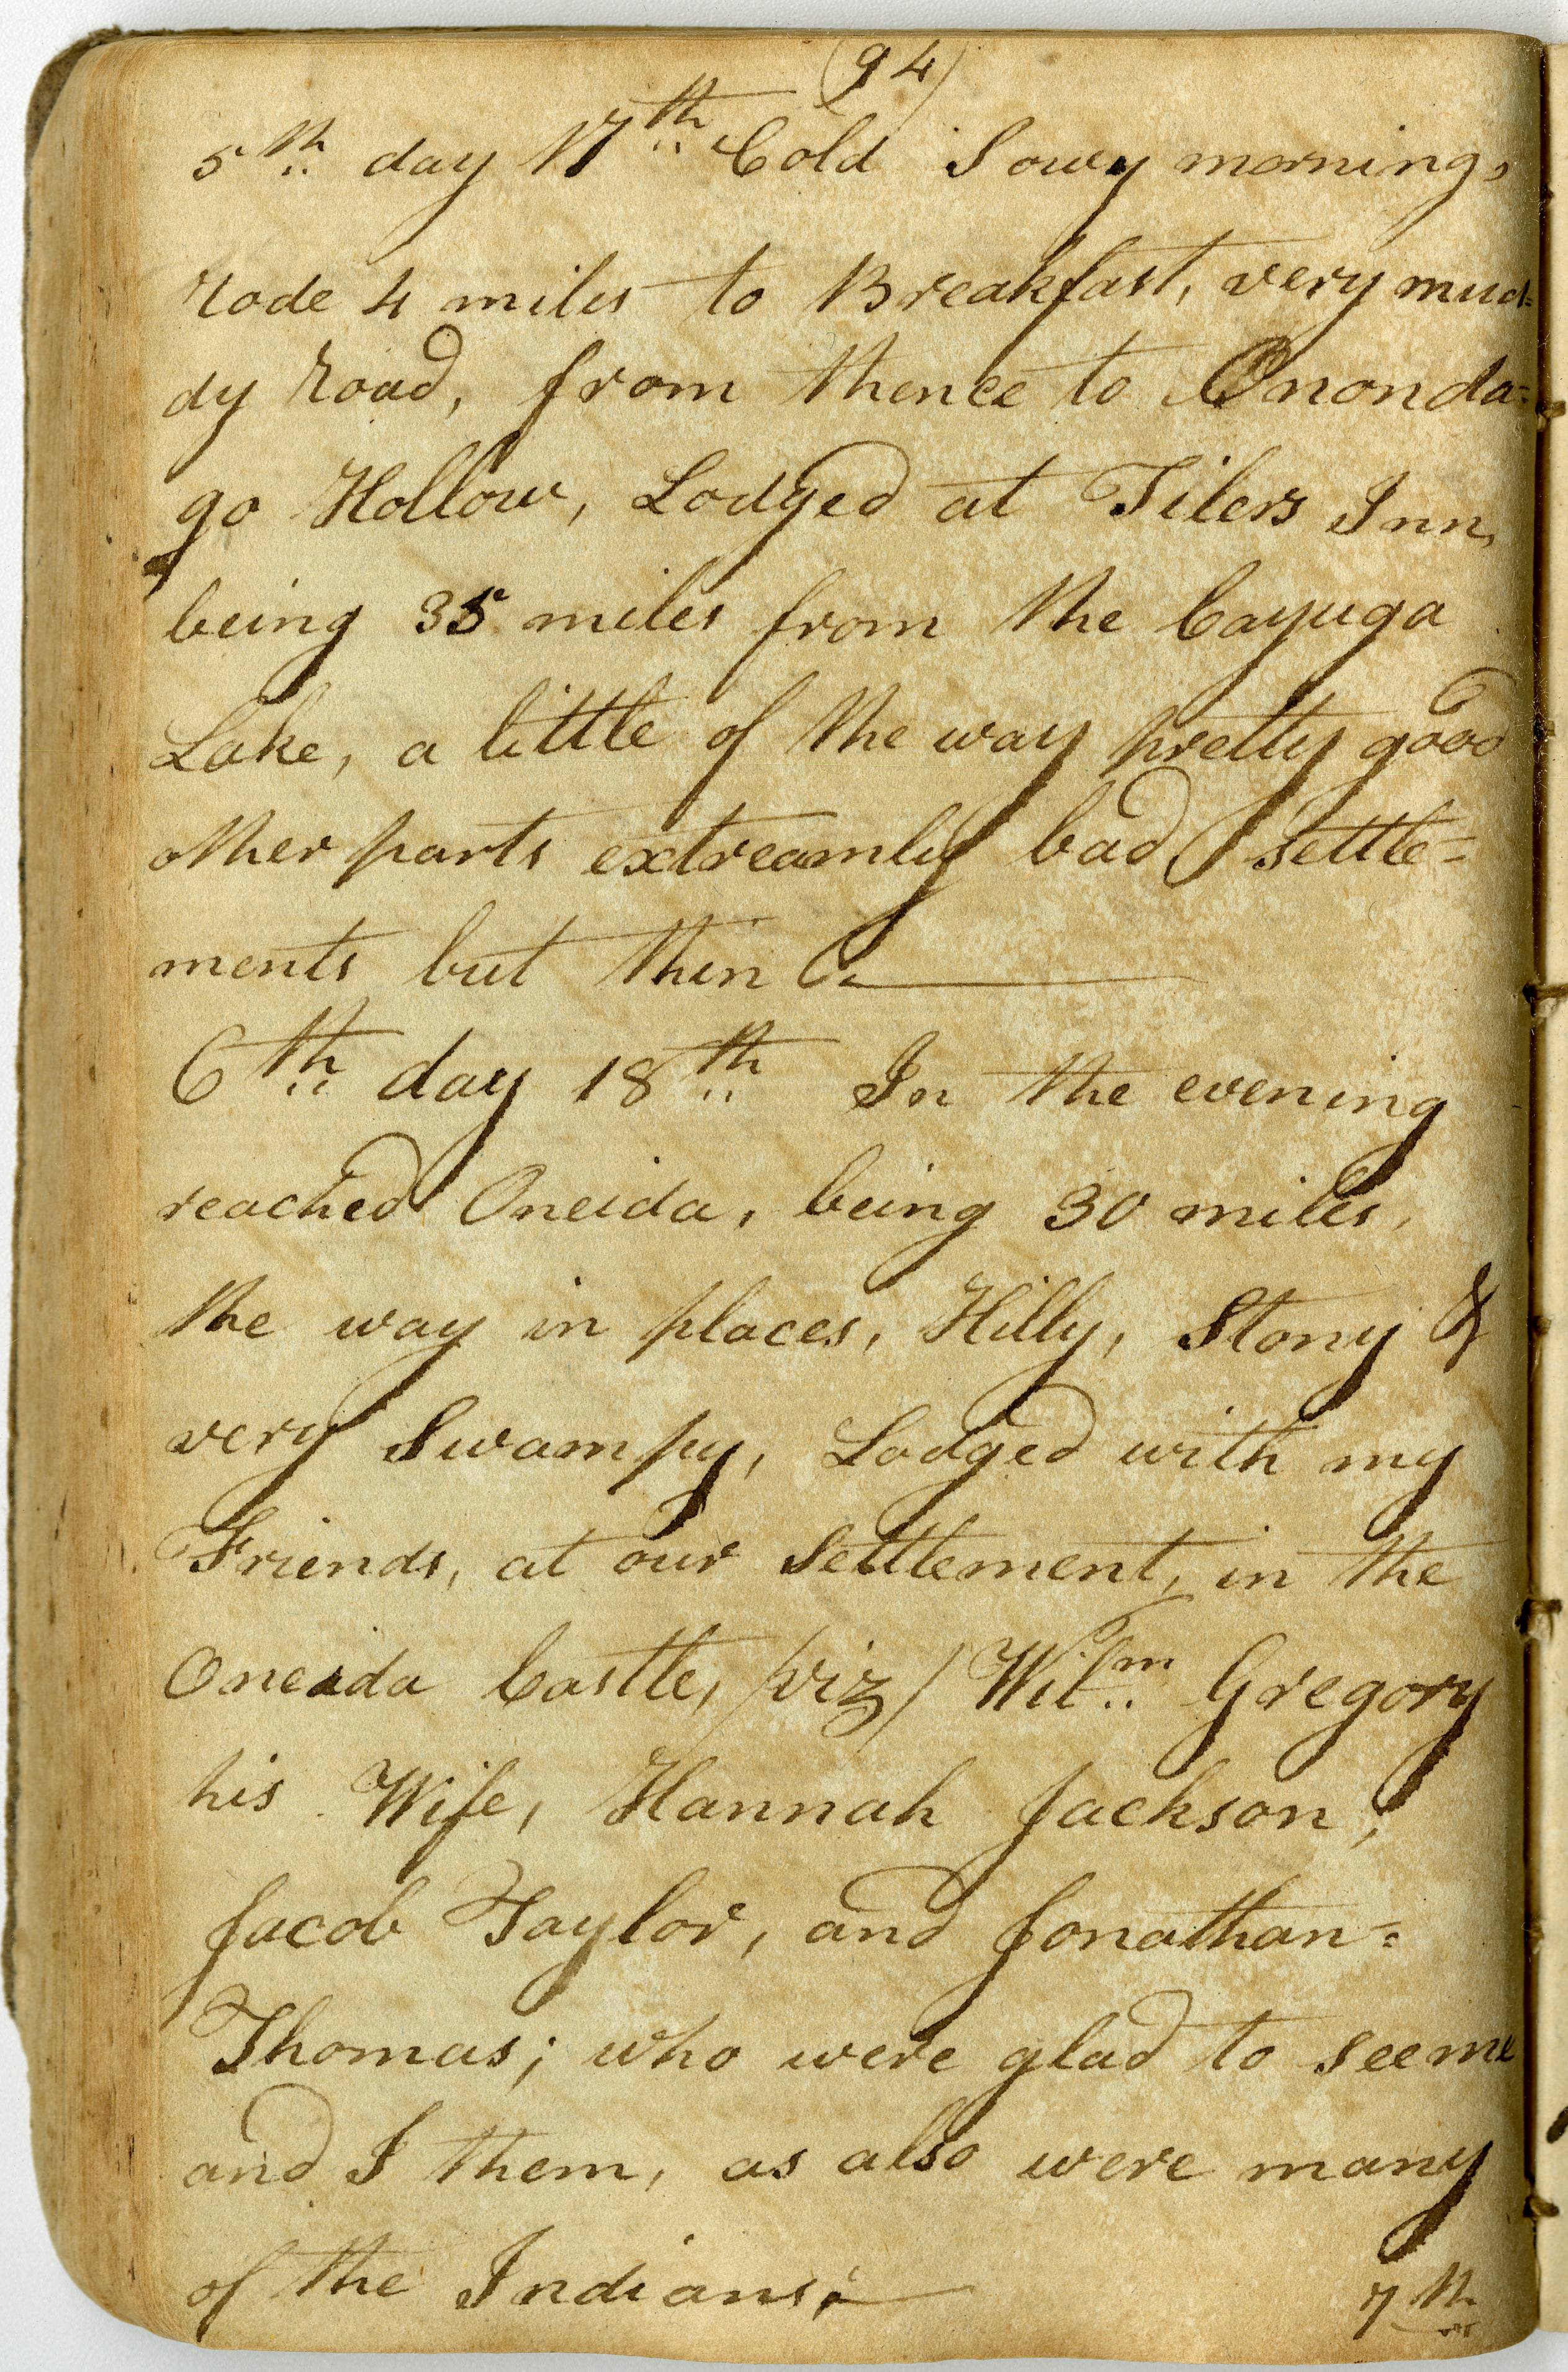 (94)
5th day 17th Cold Sowy morning,
rode 4 miles to Breakfast, very mud=
dy road, from thence to Ononda=
go Hollow, Lodged at Tilers Inn,
being 35 miles from the Cayuga
Lake, a little of the way pretty good
other parts extreamly bad settle=
ments but thin
6th day 18th In the evening
reached Oneida, being 30 miles,
the way in places, Hilly, Stony &
very Swampy, Lodged with my
Friends, at our Settlement, in the
Oneida Castle, /viz/ Wilm Gregory
his Wife, Hannah Jackson,
Jacob Taylor, and Jonathan=
Thomas; who were glad to see me
and I them, as also were many
of the Indians;
7th